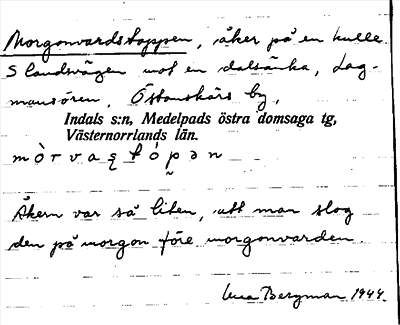 Morgonvardstappen, åker på en kulle
S landsvägen mot en dalsänka, Lag-
mansören, Östanskärs by,
Indals s:n, Medelpads östra domsaga tg,
Västernorrlands län.
Åkern var så liten, att man slog
den på morgon före morgonvarden.
Bergman 1944.